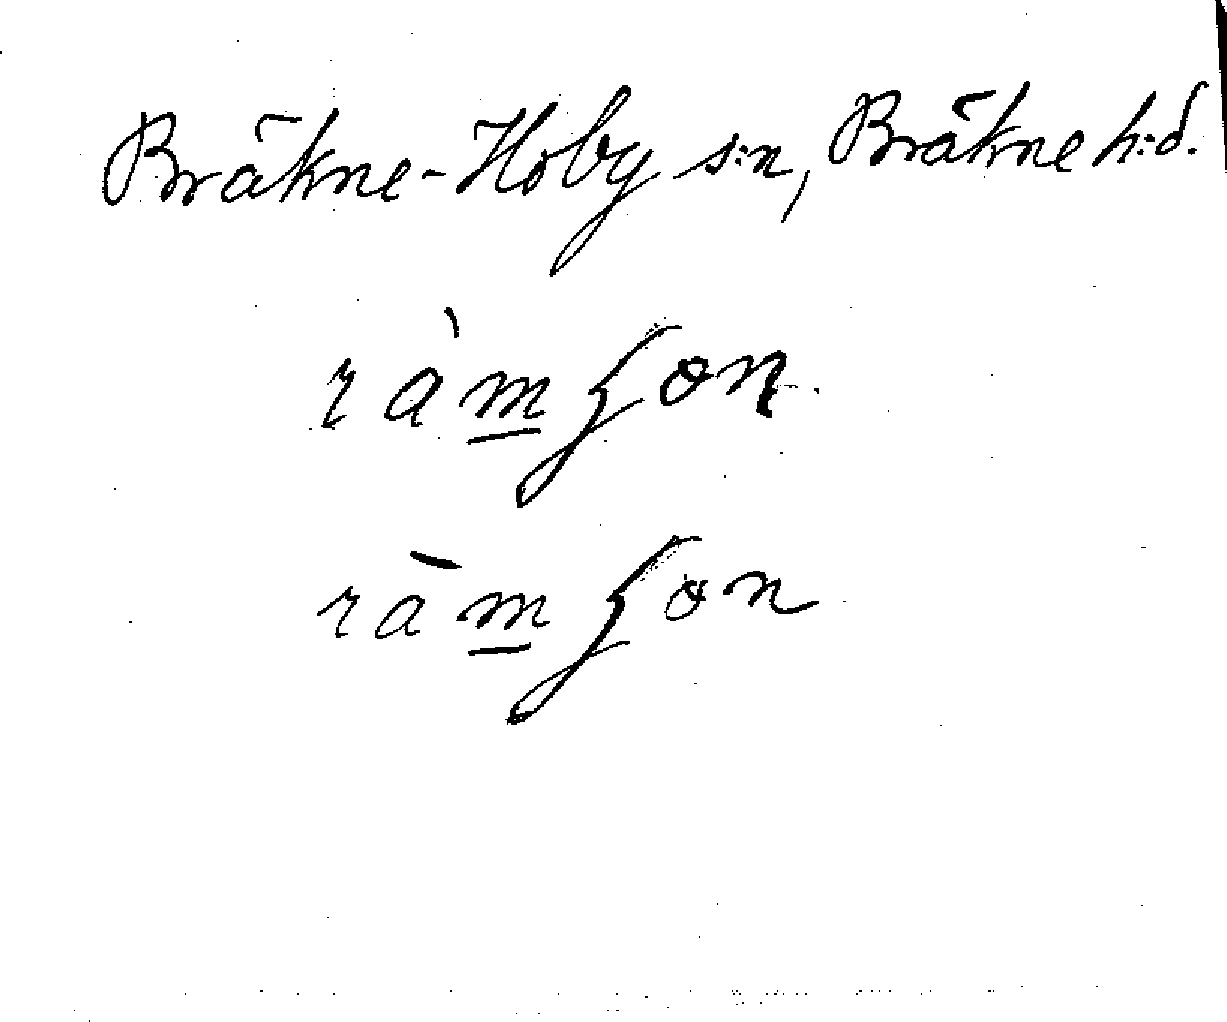 Bräkne-Hoby s:n, Bräkne h:d.
ràmʃon
ràmʃon